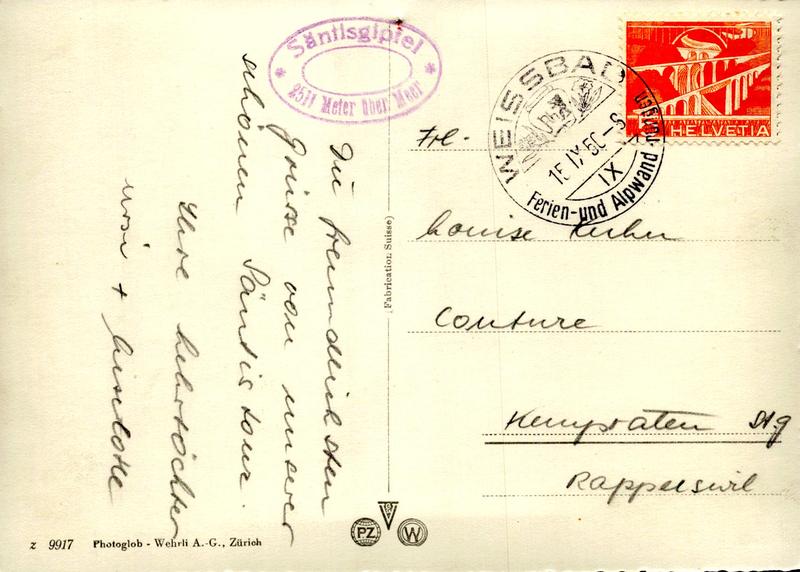 Säntisgipfel
2511 Meter über Meer
Die freundlichsten
Grüsse von unserer
schönen Säntistour.
Ihre Lehrtöchter
Ursi + Liselotte
(Fabrication Suisse)
WEISSBAD
15.IX.50-8
IX
Ferien- und Alpwand
HELVETIA
Frl.
Louise
Couture
Kempraten St.g
Rapperswil
PZ
W
z 9917 Photoglob - Wehrli A.-G., Zürich